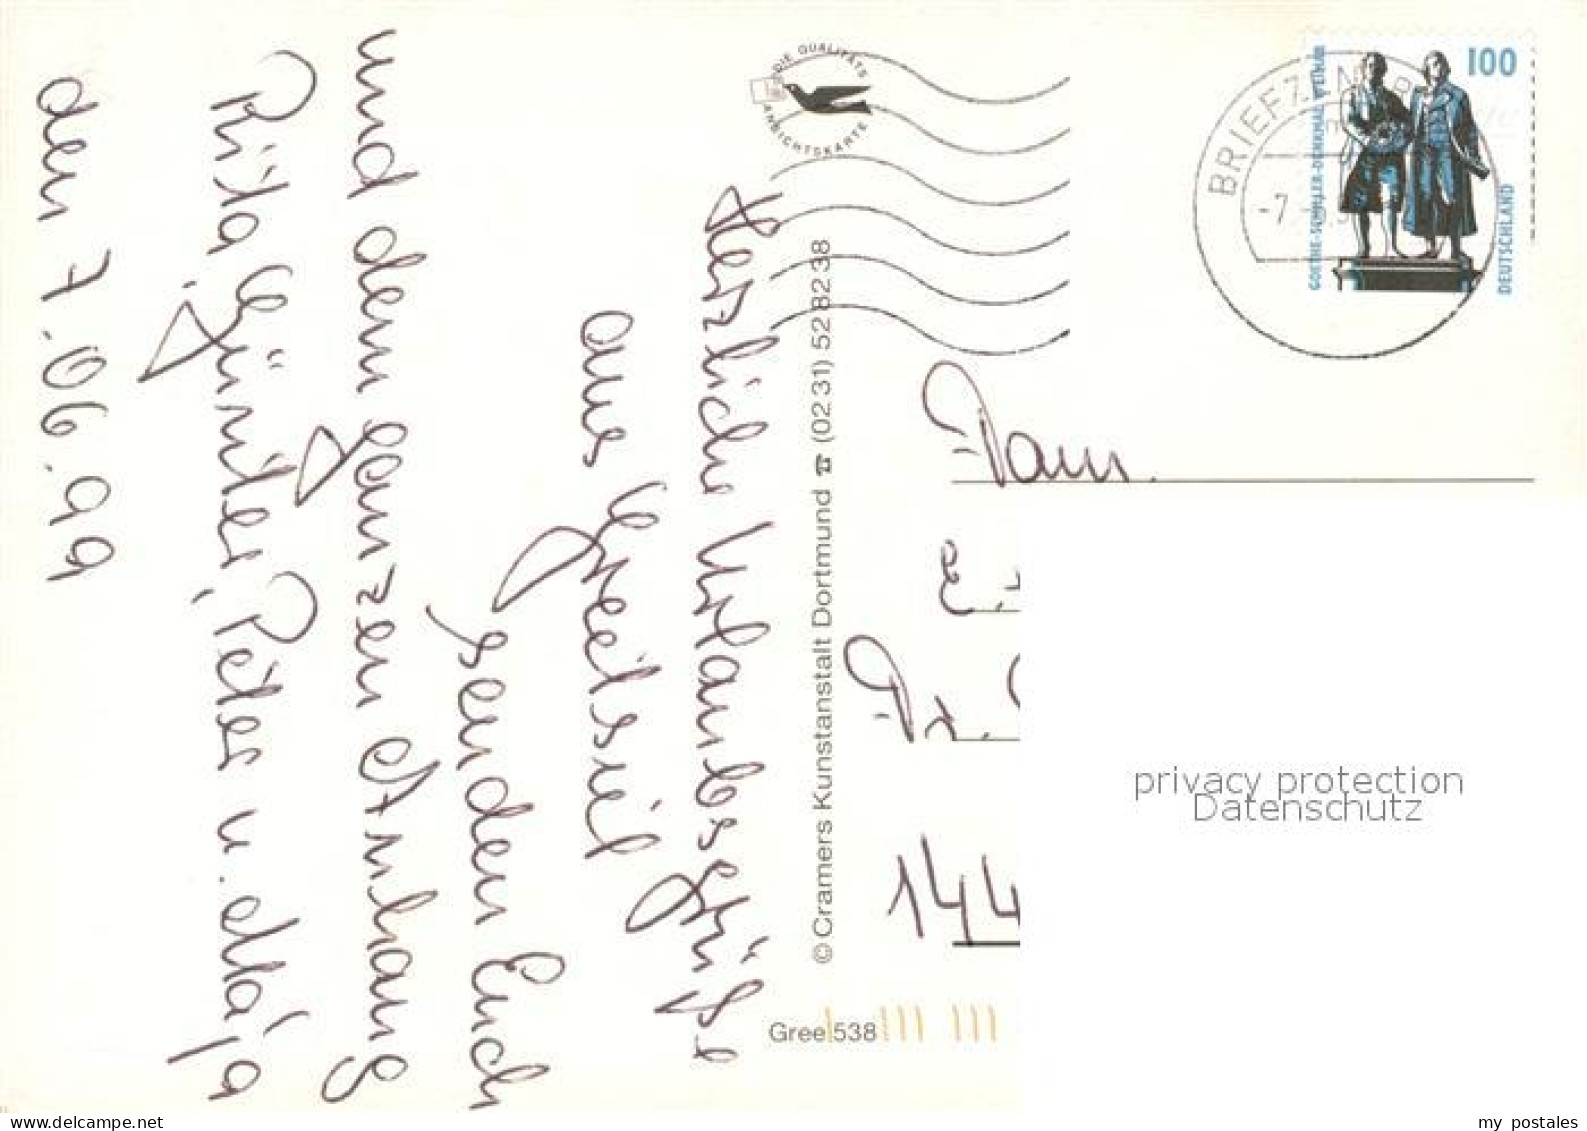 Herzliche Urlaubsgrüße
aus Greetsiel
senden Euch
und dem ganzen Anhang
Rita, Günter, Peter u. Maja
den 7.06.99
DIE QUALITÄTS
ANSICHTSKARTE
© Cramers Kunstanstalt Dortmund ☎ (02 31) 52 82 38
Gree 538
BRIEFZEN
-7
100
GOETHE-SCHILLER-DENKMAL WEIMAR
DEUTSCHLAND
Fam.
Fr.
144
privacy protection
Datenschutz
delcampe.net
my_postales